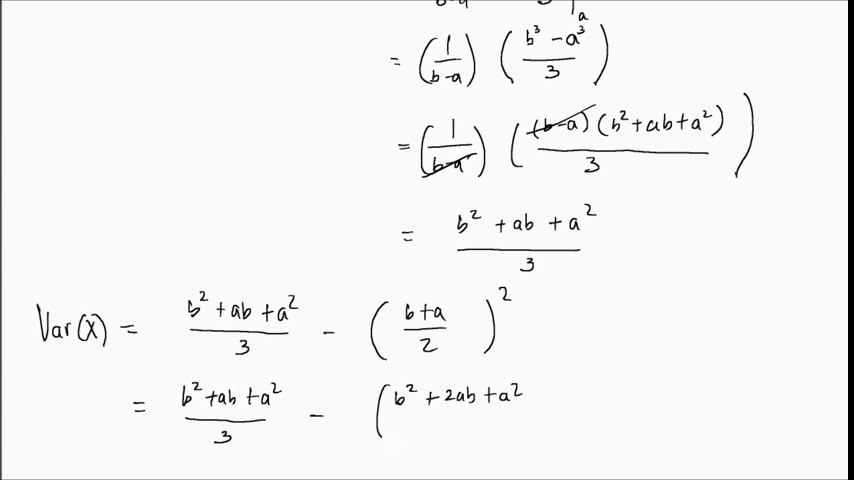 = (1/(b-a)) ((b³ - a³)/3)
= (1/(b-a)) ((b-a)(b² + ab + a²)/3)
= (b² + ab + a²)/3
Var(X) = (b² + ab + a²)/3 - ((b+a)/2)²
= (b² + ab + a²)/3 - (b² + 2ab + a²